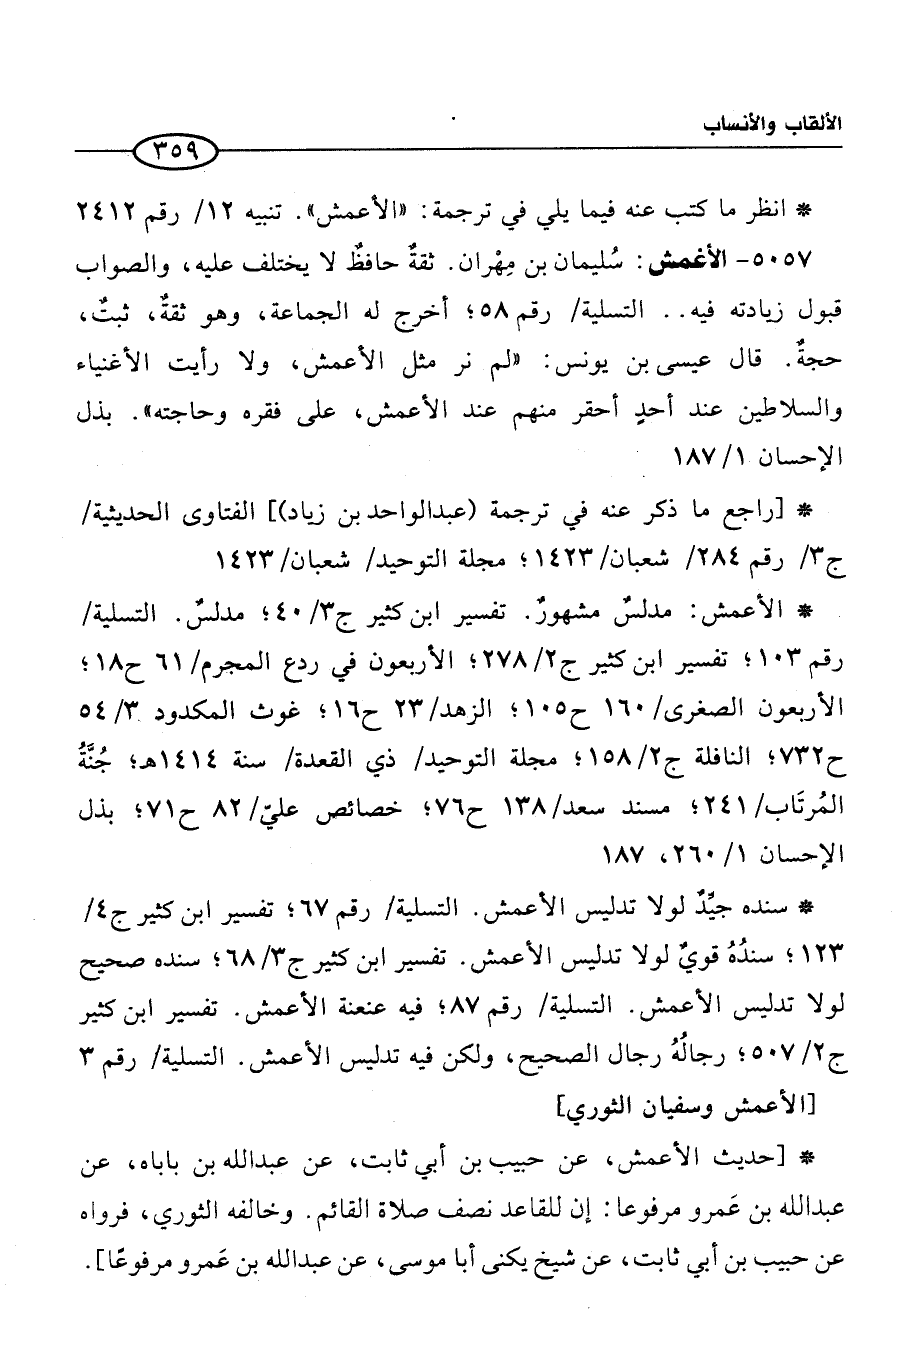 الألقاب والأنساب
٣٥٩
* انظر ما كتب عنه فيما يلي في ترجمة: «الأعمش». تنبيه ١٢/ رقم ٢٤١٢
٥٠٥٧- الأعمش: سُليمان بن مِهْران. ثقةٌ حافظٌ لا يختلف عليه، والصواب
قبول زيادته فيه.. التسلية/ رقم ٥٨؛ أخرج له الجماعة، وهو ثقةٌ، ثبتٌ،
حجةٌ. قال عيسى بن يونس: «لم نر مثل الأعمش، ولا رأيت الأغنياء
والسلاطين عند أحدٍ أحقر منهم عند الأعمش، على فقره وحاجته». بذل
الإحسان ١/ ١٨٧
* [راجع ما ذكر عنه في ترجمة (عبدالواحد بن زياد)] الفتاوى الحديثية/
ج٣/ رقم ٢٨٤/ شعبان/ ١٤٢٣؛ مجلة التوحيد/ شعبان/ ١٤٢٣
* الأعمش: مدلسٌ مشهورٌ. تفسير ابن كثير ج٣/ ٤٠؛ مدلسٌ. التسلية/
رقم ١٠٣؛ تفسير ابن كثير ج٢/ ٢٧٨؛ الأربعون في ردع المجرم/ ٦١ ح١٨؛
الأربعون الصغرى/ ١٦٠ ح١٠٥؛ الزهد/ ٢٣ ح١٦؛ غوث المكدود ٣/ ٥٤
ح٧٣٢؛ النافلة ج٢/ ١٥٨؛ مجلة التوحيد/ ذي القعدة/ سنة ١٤١٤هـ؛ جُنَّةُ
المُرتَاب/ ٢٤١؛ مسند سعد/ ١٣٨ ح٧٦؛ خصائص عليّ/ ٨٢ ح٧١؛ بذل
الإحسان ١/ ٢٦٠، ١٨٧
* سنده جيِّدٌ لولا تدليس الأعمش. التسلية/ رقم ٦٧؛ تفسير ابن كثير ج٤/
١٢٣؛ سندُهُ قويٌ لولا تدليس الأعمش. تفسير ابن كثير ج٣/ ٦٨؛ سنده صحيح
لولا تدليس الأعمش. التسلية/ رقم ٨٧؛ فيه عنعنة الأعمش. تفسير ابن كثير
ج٢/ ٥٠٧؛ رجالُهُ رجال الصحيح، ولكن فيه تدليس الأعمش. التسلية/ رقم ٣
[الأعمش وسفيان الثوري]
* [حديث الأعمش، عن حبيب بن أبي ثابت، عن عبدالله بن باباه، عن
عبدالله بن عَمرو مرفوعا: إن للقاعد نصف صلاة القائم. وخالفه الثوري، فرواه
عن حبيب بن أبي ثابت، عن شيخ يكنى أبا موسى، عن عبدالله بن عَمرو مرفوعًا].